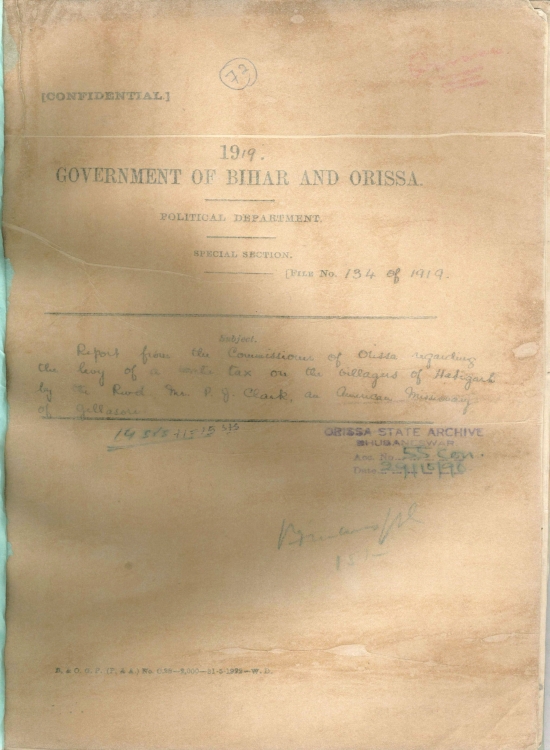 73
[CONFIDENTIAL]
1919.
GOVERNMENT OF BIHAR AND ORISSA.
POLITICAL DEPARTMENT.
SPECIAL SECTION.
[FILE No. 134 of 1919.
Subject.
Report from the Commissioner of Orissa regarding
the levy of a tax on the villagers of Hatigarh
by the Revd. Mr. Clark, an American Missionary
of
ORISSA STATE ARCHIVE
BHUBANESWAR
Acc. No. 55 Con.
Date